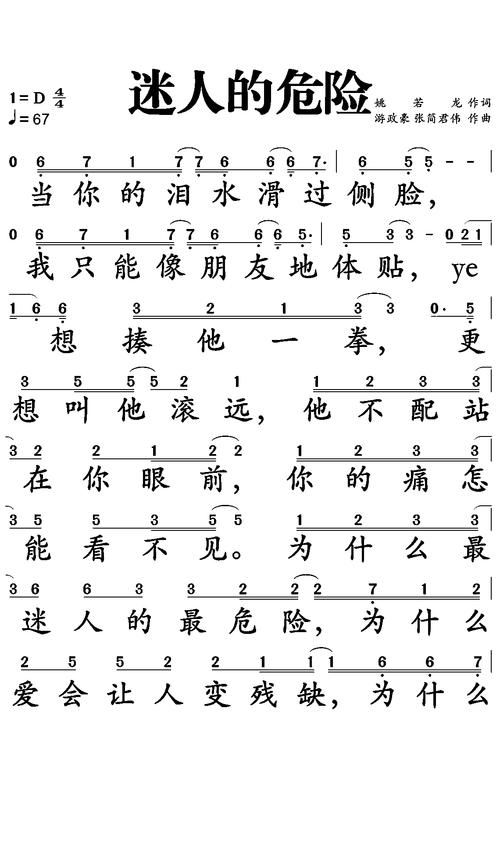 迷人的危险
1=D 4/4
♩=67
姚 若 龙 作词
游政豪 张简君伟 作曲
0 6 7 1 7 7 6 6 6 7· | 6 5 5 - - |
当你的泪水滑过侧脸，
0 6 7 1 7 7 6 6 5· | 5 3 3 - 0 2 1 |
我只能像朋友地体贴，ye
1 6 6 3 2 1 3 3 0· 5
想揍他一拳，更
3 5 5 5 2 1 1 2 3 3 |
想叫他滚远，他不配站
3 2 2 1 2 2 1 2 3 3 |
在你眼前，你的痛怎
3 5 5 3 5 5 1 2 3 3 |
能看不见。为什么最
3 6 6 3 3 2 2 2 7 1 2 |
迷人的最危险，为什么
2 5 5 2 2 1 1 1 6 6 7 |
爱会让人变残缺，为什么